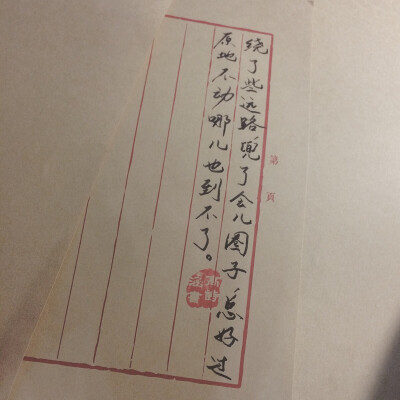 绕了些远路兜了会儿圈子总好过
原地不动哪儿也到不了。
第 頁